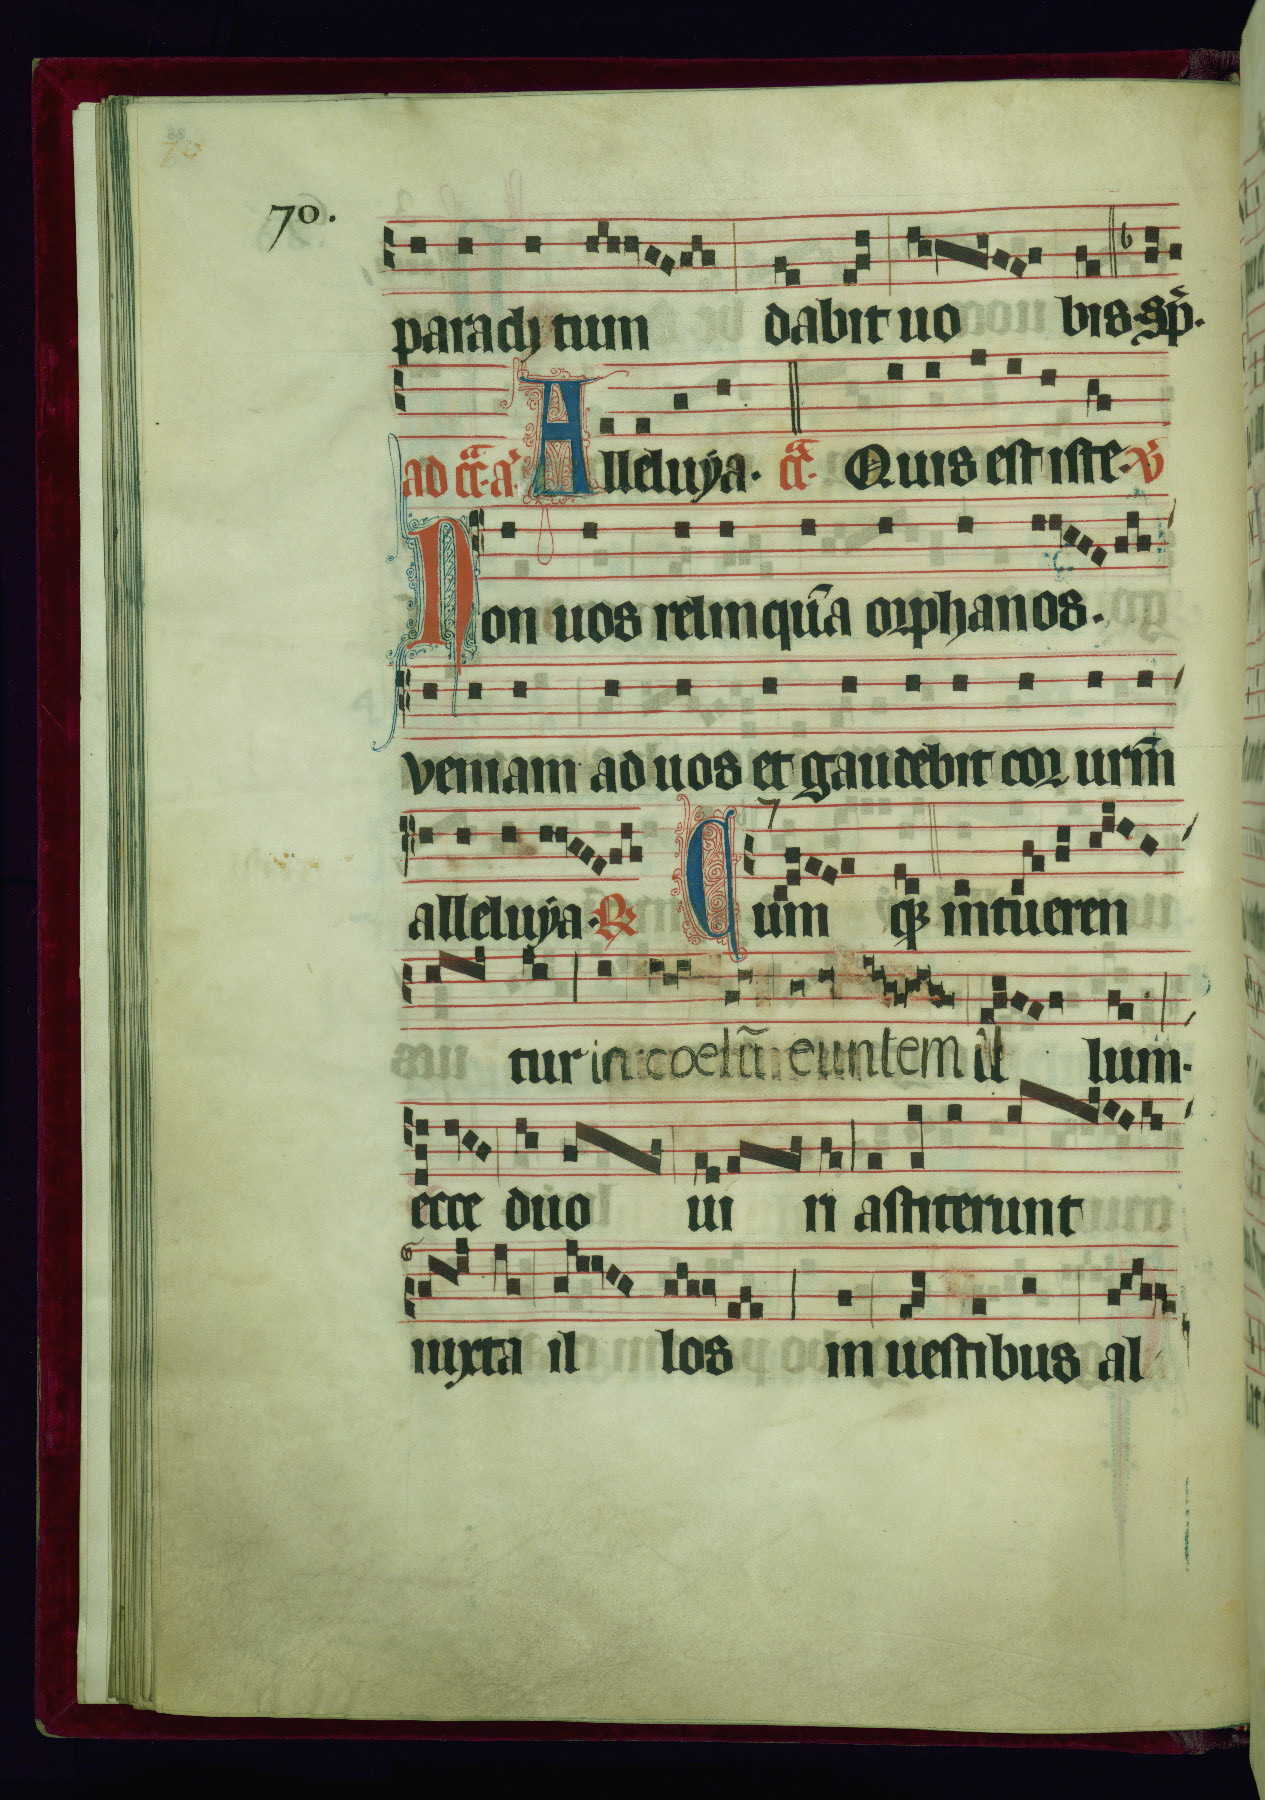 70
70.
paraclytum dabit uo bis. sp̄.
ad cā. a. Alleluya. cā. Quis est iste. v̄
Non uos relinquā orphanos.
veniam ad uos et gaudebit cor urm̄
alleluya. R. Cum qꝫ intueren
tur in coelū euntem il lum.
ecce duo ui ri astiterunt
iuxta il los in uestibus al